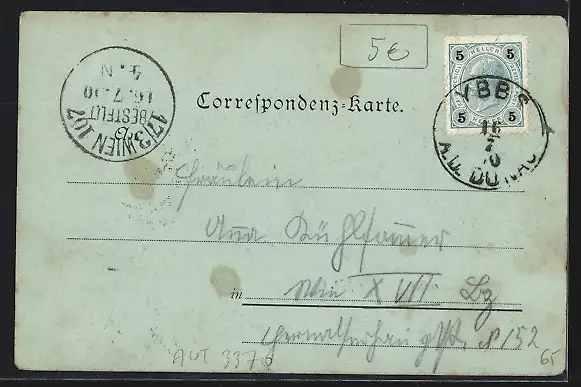 5€
5 HELLER 5
5 5
17/3 WIEN 107
BESTELLT
16.7.00
4. N
YBBS
16
7
00
A.D. DONAU
Correspondenz-Karte.
Fräulein
Anna
in Wien XVII. Bz
№ 152
AUT 3376
65